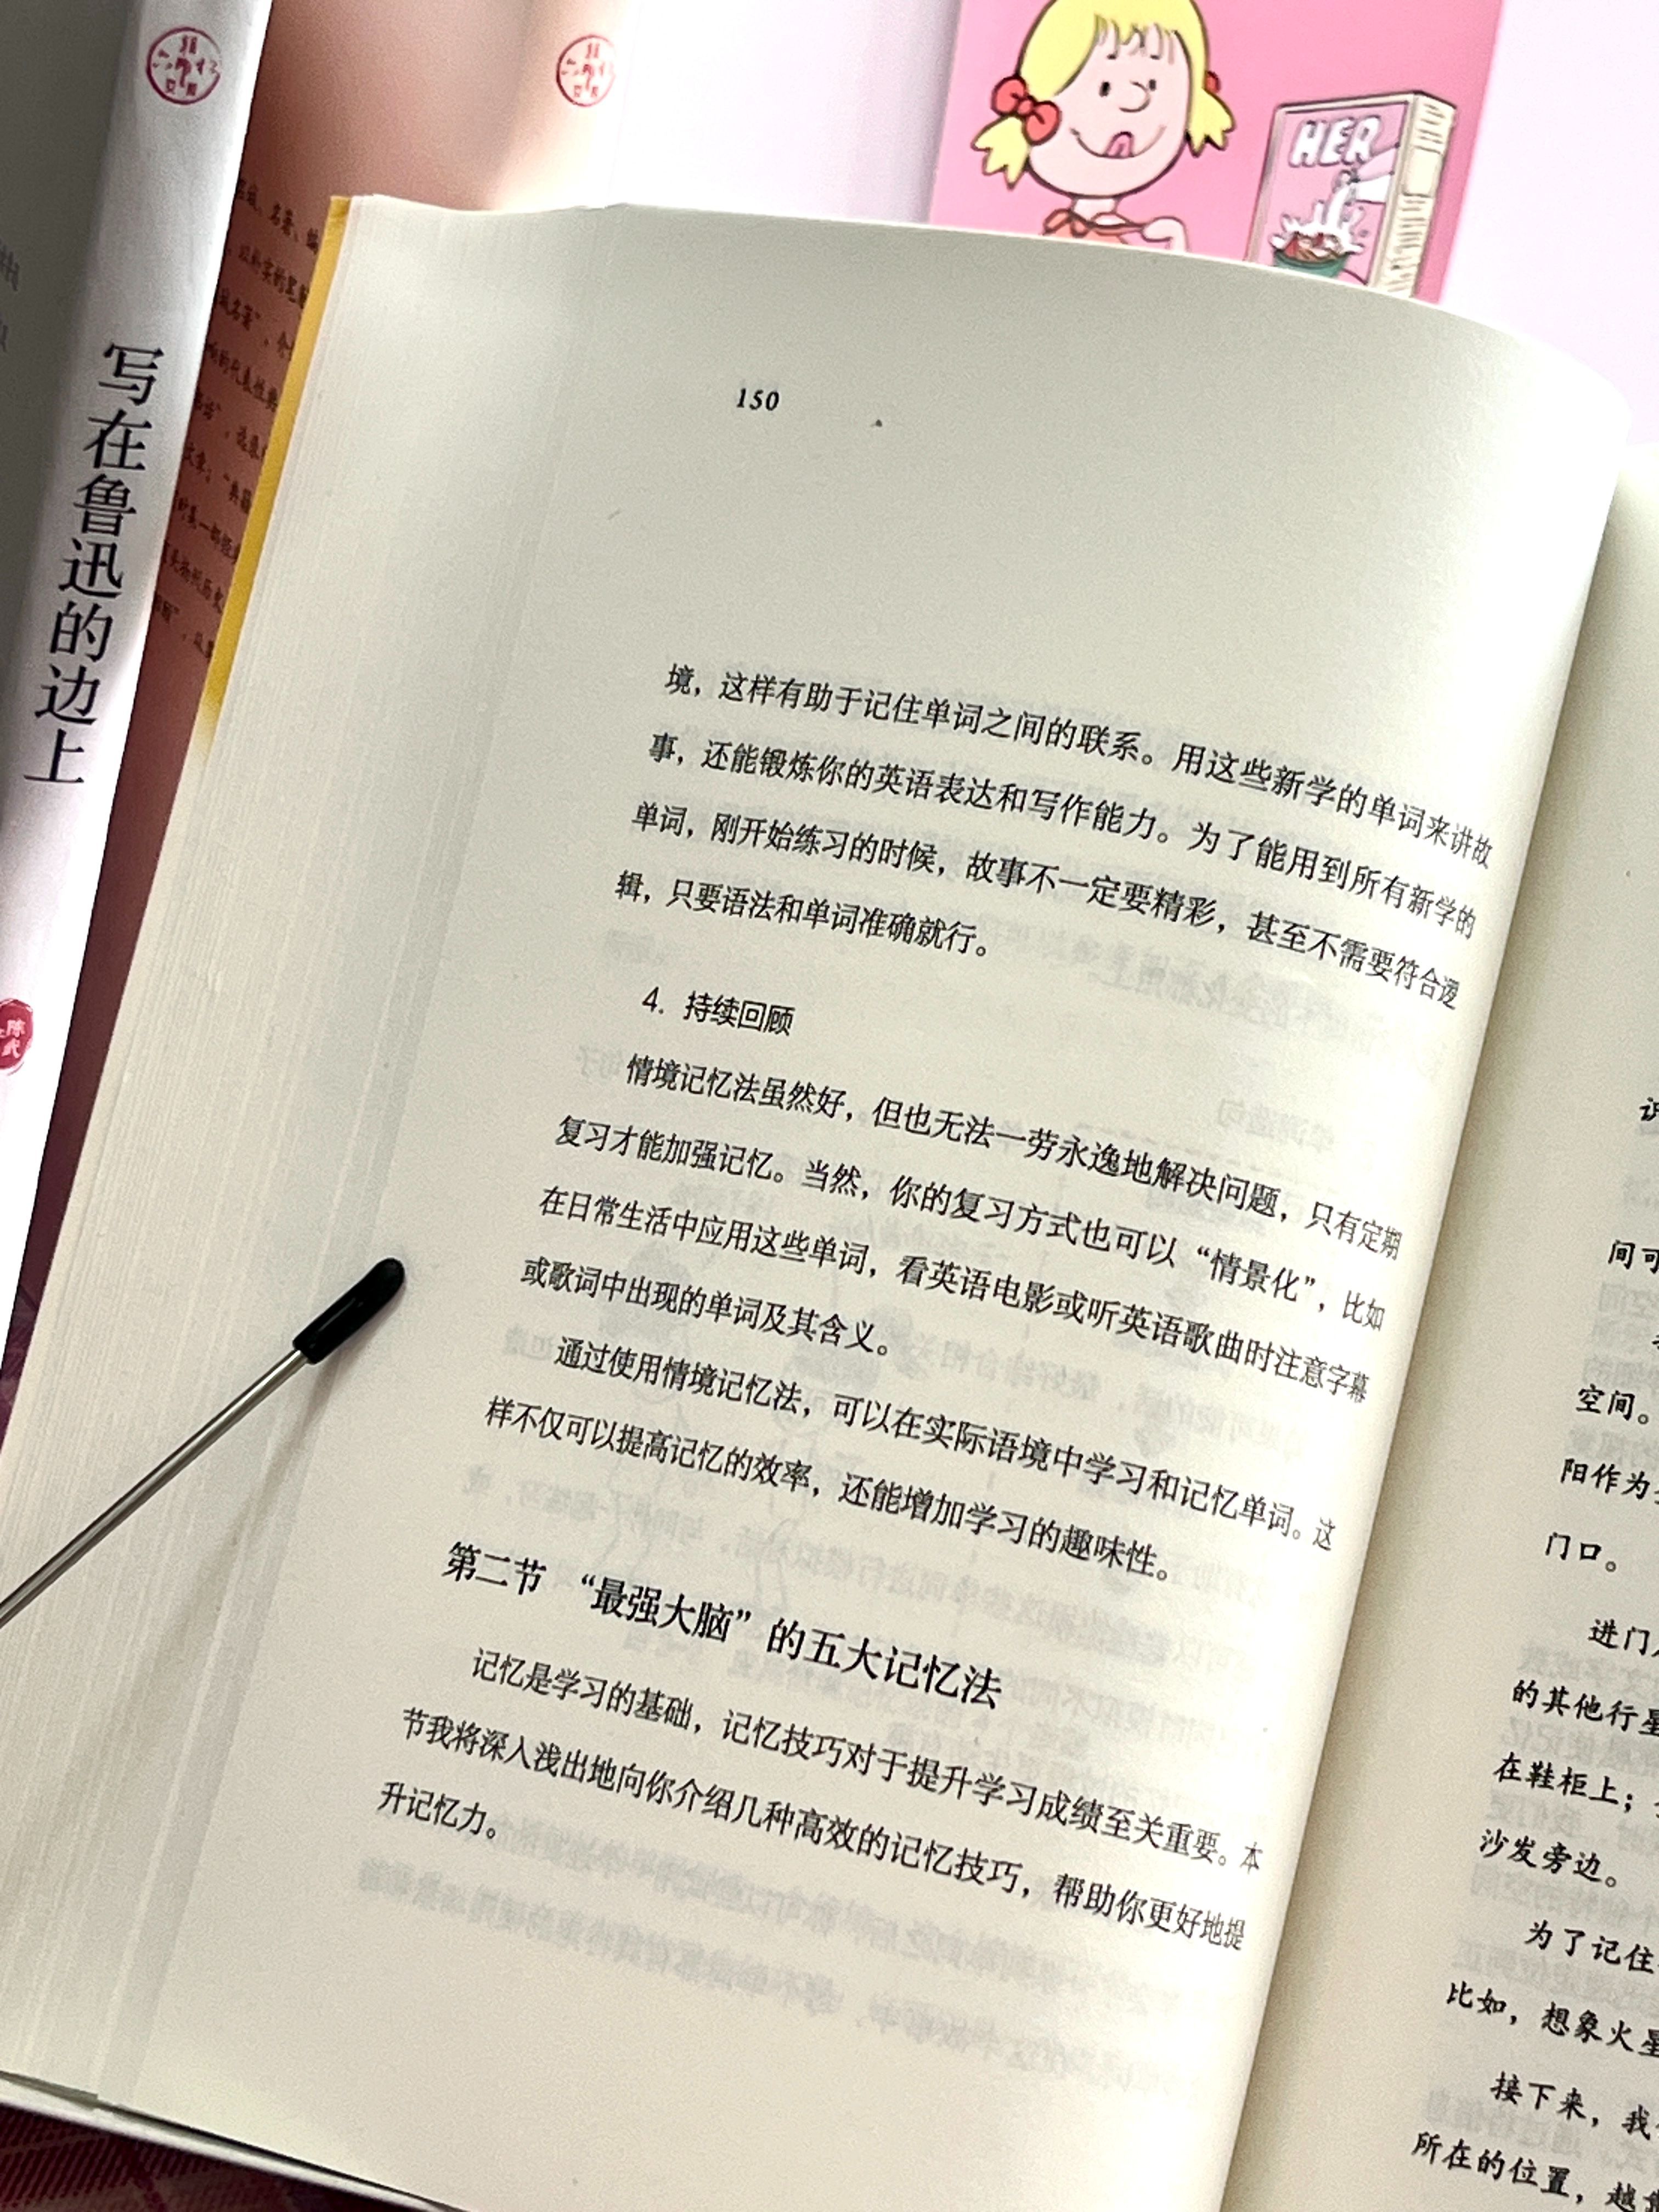 写在鲁迅的边上
HER
150
境，这样有助于记住单词之间的联系。用这些新学的单词来讲故
事，还能锻炼你的英语表达和写作能力。为了能用到所有新学的
单词，刚开始练习的时候，故事不一定要精彩，甚至不需要符合逻
辑，只要语法和单词准确就行。
4. 持续回顾
情境记忆法虽然好，但也无法一劳永逸地解决问题，只有定期
复习才能加强记忆。当然，你的复习方式也可以“情景化”，比如
在日常生活中应用这些单词，看英语电影或听英语歌曲时注意字幕
或歌词中出现的单词及其含义。
通过使用情境记忆法，可以在实际语境中学习和记忆单词。这
样不仅可以提高记忆的效率，还能增加学习的趣味性。
第二节 “最强大脑”的五大记忆法
记忆是学习的基础，记忆技巧对于提升学习成绩至关重要。本
节我将深入浅出地向你介绍几种高效的记忆技巧，帮助你更好地提
升记忆力。
间可
空间。
阳作为
门口。
进门
的其他行星
在鞋柜上；
沙发旁边。
为了记住
比如，想象火星
接下来，我
所在的位置，越